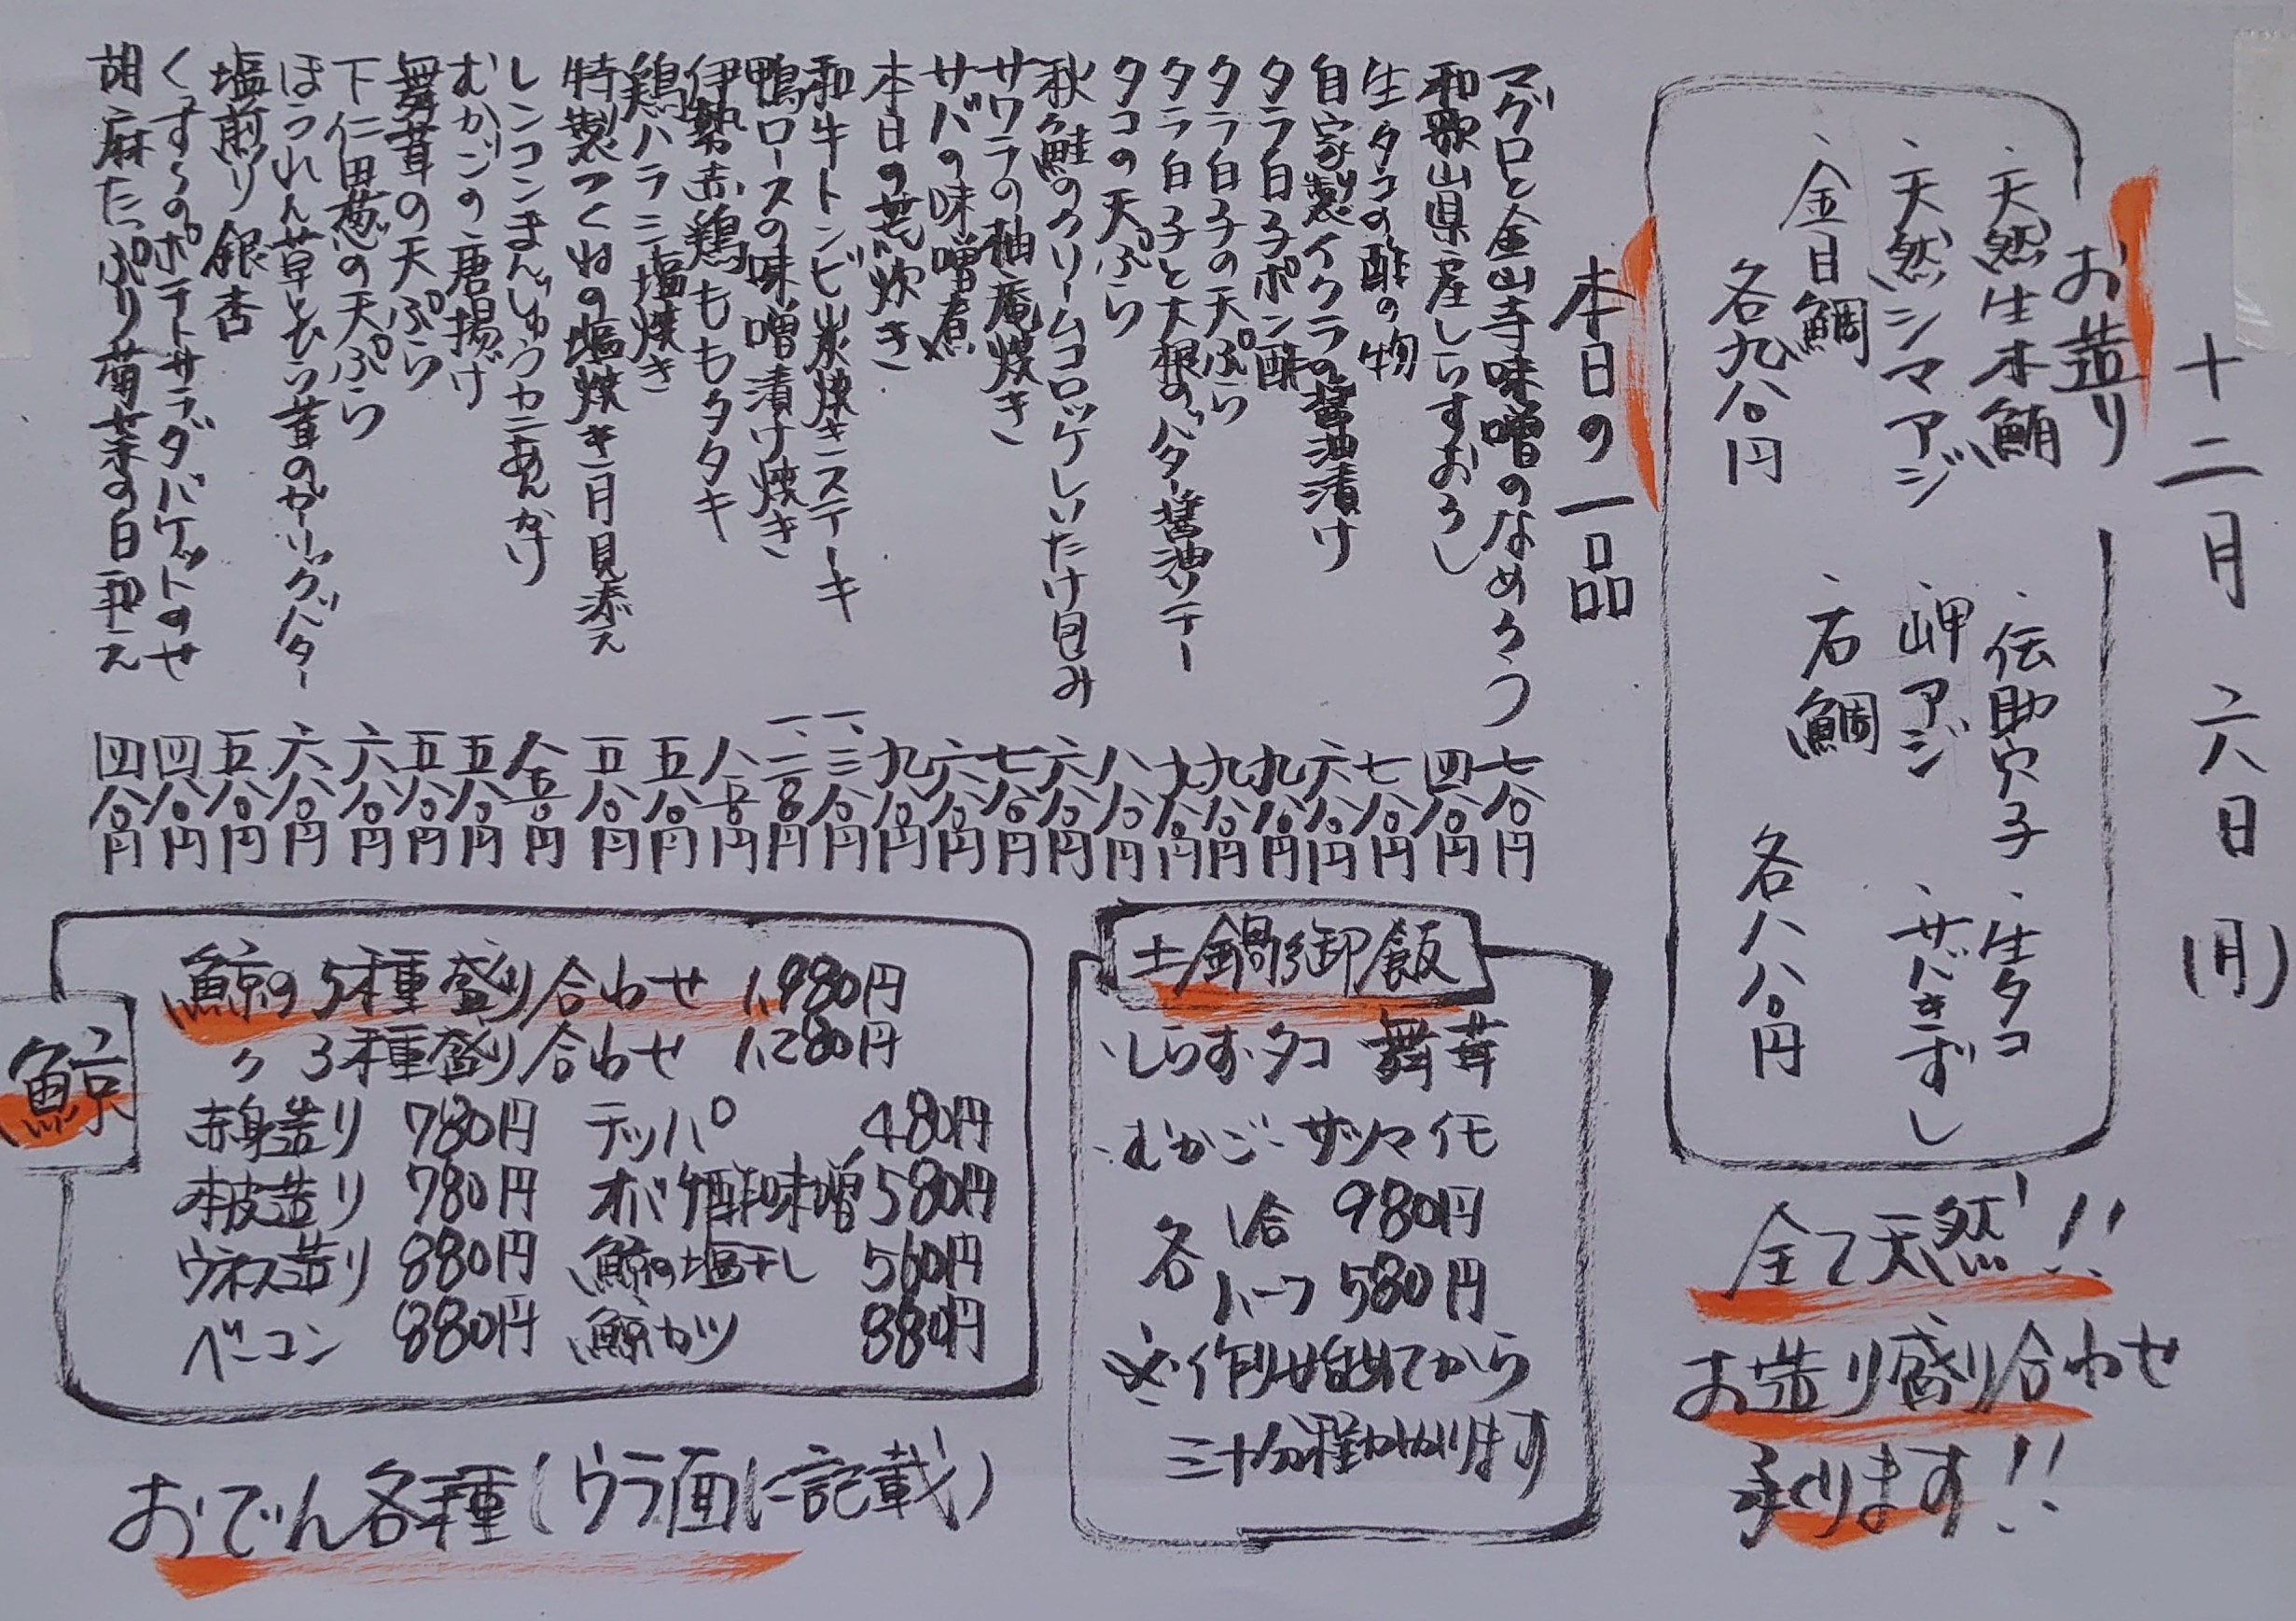 十二月六日(月)
お造り
・天然生本鮪
・天然シマアジ
・金目鯛
各九八〇円
・伝助穴子
・岬アジ
・石鯛
・生タコ
・サバきずし
各八八〇円
全て天然!!
お造り盛り合わせ
承ります!!
本日の一品
マグロと金山寺味噌のなめろう 七八〇円
和歌山県産しらすおろし 四八〇円
生タコの酢の物 七八〇円
自家製イクラの醤油漬け 六八〇円
タラ白子ポン酢 九八〇円
タラ白子の天ぷら 九八〇円
タラ白子と大根のバター醤油ソテー 九八〇円
タコの天ぷら 八八〇円
秋鮭のクリームコロッケしいたけ包み 六八〇円
サワラの柚庵焼き 七八〇円
サバの味噌煮 六八〇円
本日の荒炊き 九八〇円
和牛トンビ炭焼きステーキ 一、三八〇円
鴨ロースの味噌漬け焼き 一、二八〇円
伊勢赤鶏ももタタキ 八五〇円
鶏ハラミ塩焼き 五八〇円
特製つくねの塩焼き月見添え 五八〇円
レンコンまんじゅうカニあんかけ 八五〇円
むかごの唐揚げ 五八〇円
舞茸の天ぷら 五八〇円
下仁田葱の天ぷら 六八〇円
ほうれん草とひら茸のガーリックバター 六八〇円
塩煎り銀杏 五八〇円
くずしポテトサラダバケットのせ 四八〇円
胡麻たっぷり菊菜の白和え 四八〇円
土鍋御飯
・しらす・タコ 舞茸
・むかご・サツマイモ
各 1合 980円
ハーフ 580円
※作り始めてから
三十分程かかります
鯨
鯨の5種盛り合わせ 1,980円
〃 3種盛り合わせ 1,280円
赤身造り 780円 テッパ 480円
本皮造り 780円 オバケ酢味噌 580円
ウネス造り 880円 鯨の塩干し 560円
ベーコン 880円 鯨カツ 880円
おでん各種(ウラ面に記載)